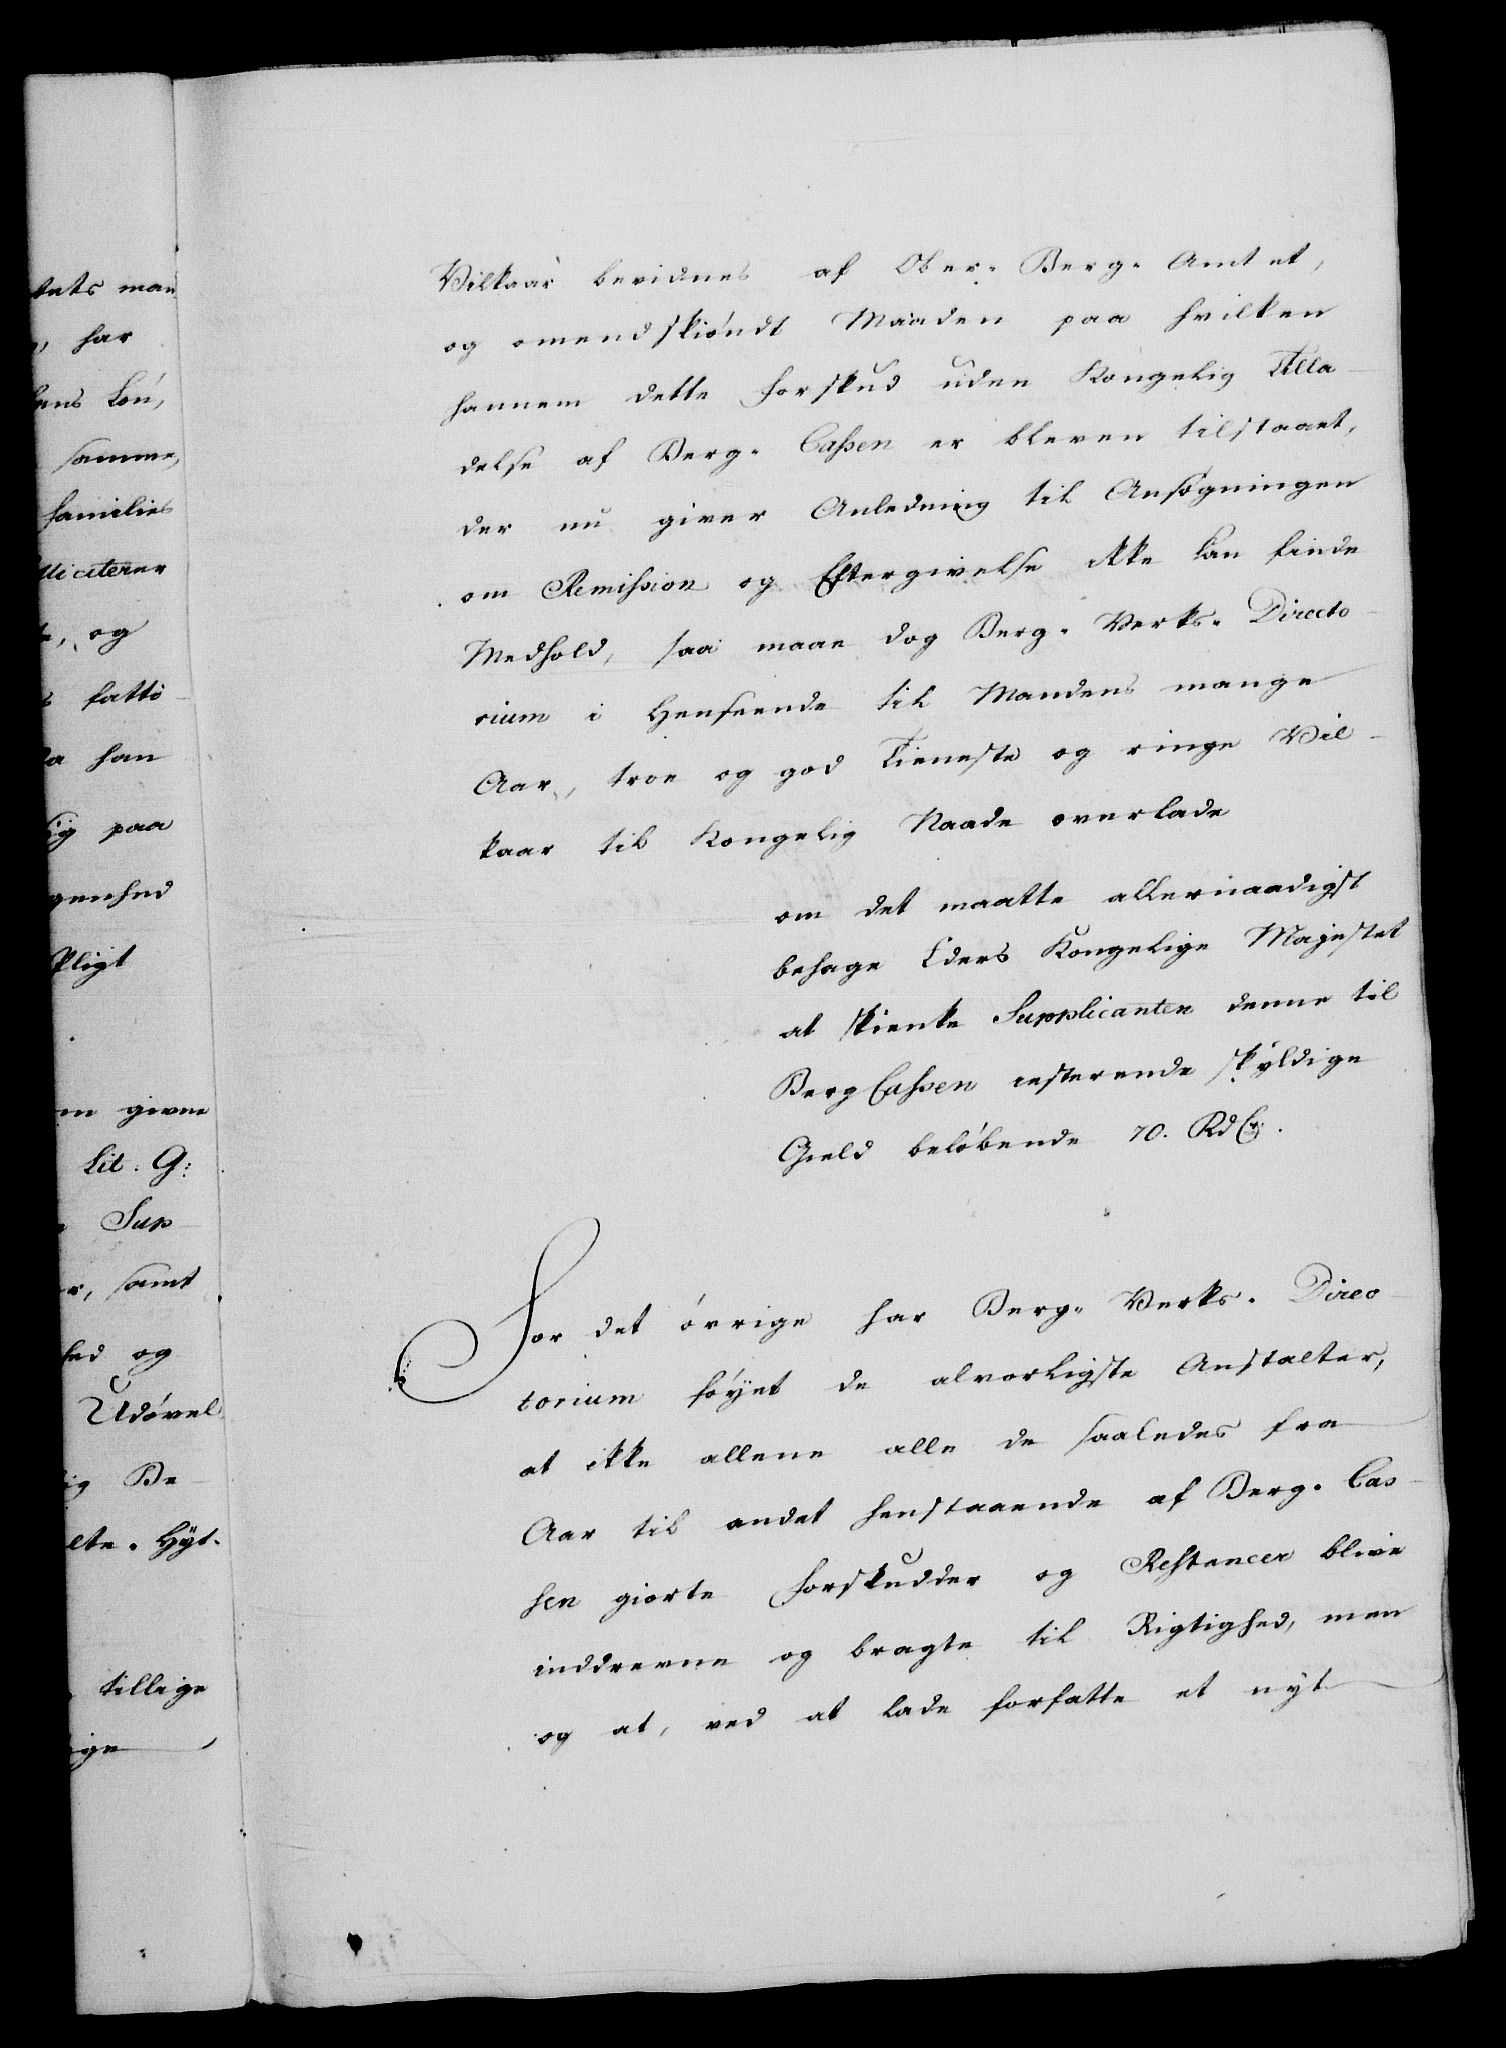 tets man
har
hans Lön,
samme,
families
lliciterer
og
fatti-
da han
lig paa
genhed
Pligt
givne
Lit. G:
Sup-
samt
hed og
Udövel
Be-
Hyt-
tillige
Vilkaar bevidnes af Ober-Berg-Amtet,
og omendskiöndt Maaden paa hvilken
hannem dette Forskud uden Kongelig Tilla-
delse af Berg-Cassen er bleven tilstaaet,
der nu giver Anledning til Ansögningen
om Remission og Eftergivelse ikke kan finde
Medhold, saa maae dog Berg-Verks-Directo-
rium i Henseende til Mandens mange
Aar, troe og god Tieneste og ringe Vil-
kaar til Kongelig Naade overlade
om det maatte allernaadigst
behage Eders Kongelige Majestet
at skienke Supplicanten denne til
Berg Cassen resterende skyldige
Gield belöbende 70. Rd Cr.
For det övrige har Berg-Verks-Direc-
torium föyet de alvorligste Anstalter,
at ikke allene alle de saaledes fra
Aar til andet henstaaende af Berg-Cas-
sen giorte Forskudder og Restancer blive
inddrevne og bragte til Rigtighed, men
og at, ved at lade forfatte et nyt